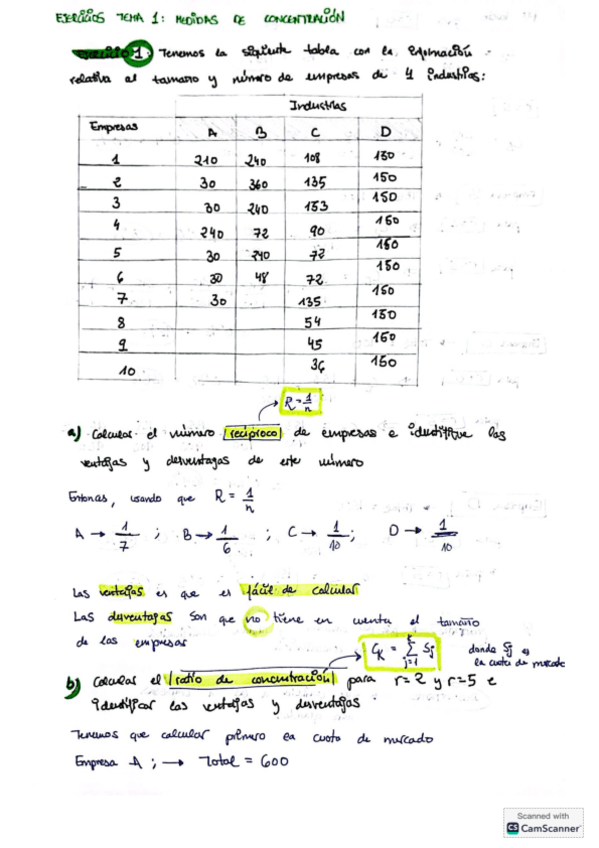 EJERCICIOS TEMA 1: MEDIDAS DE CONCENTRACIÓN
Ejercicio 1. Tenemos la siguiente tabla con la información
relativa al tamaño y número de empresas de 4 industrias:
Industrias
Empresas A B C D
1 210 240 108 150
2 30 360 135 150
3 30 240 153 150
4 240 72 90 150
5 30 240 72 150
6 30 48 72 150
7 30 135 150
8 54 150
9 45 150
10 36 150
R = 1/n
a) Calcular el número recíproco de empresas e identifique las
ventajas y desventajas de este número
Entonces, usando que R = 1/n
A → 1/7 ; B → 1/6 ; C → 1/10 ; D → 1/10
Las ventajas es que es fácil de calcular
Las desventajas son que no tiene en cuenta el tamaño
de las empresas
donde Sj es
la cuota de mercado
b) Calcular el ratio de concentración para r=2 y r=5 e
identificar las ventajas y desventajas
Tenemos que calcular primero la cuota de mercado
Empresa A ; → Total = 600
Scanned with
CS CamScanner